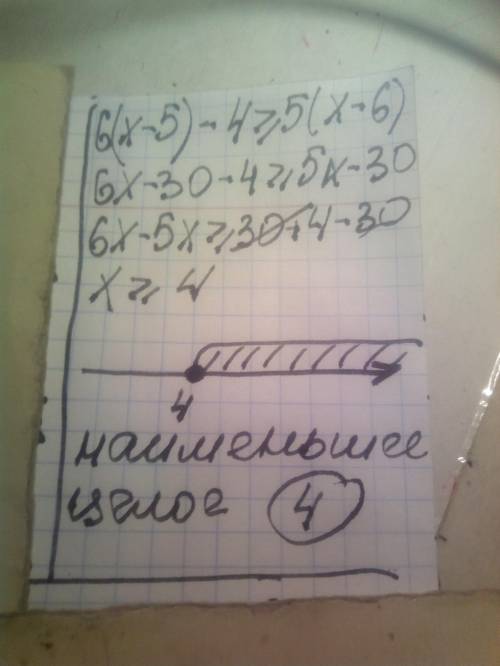 6(x-5)-4⩾5(x-6)
6x-30-4⩾5x-30
6x-5x⩾30+4-30
x⩾4
4
наименьшее
целое 4